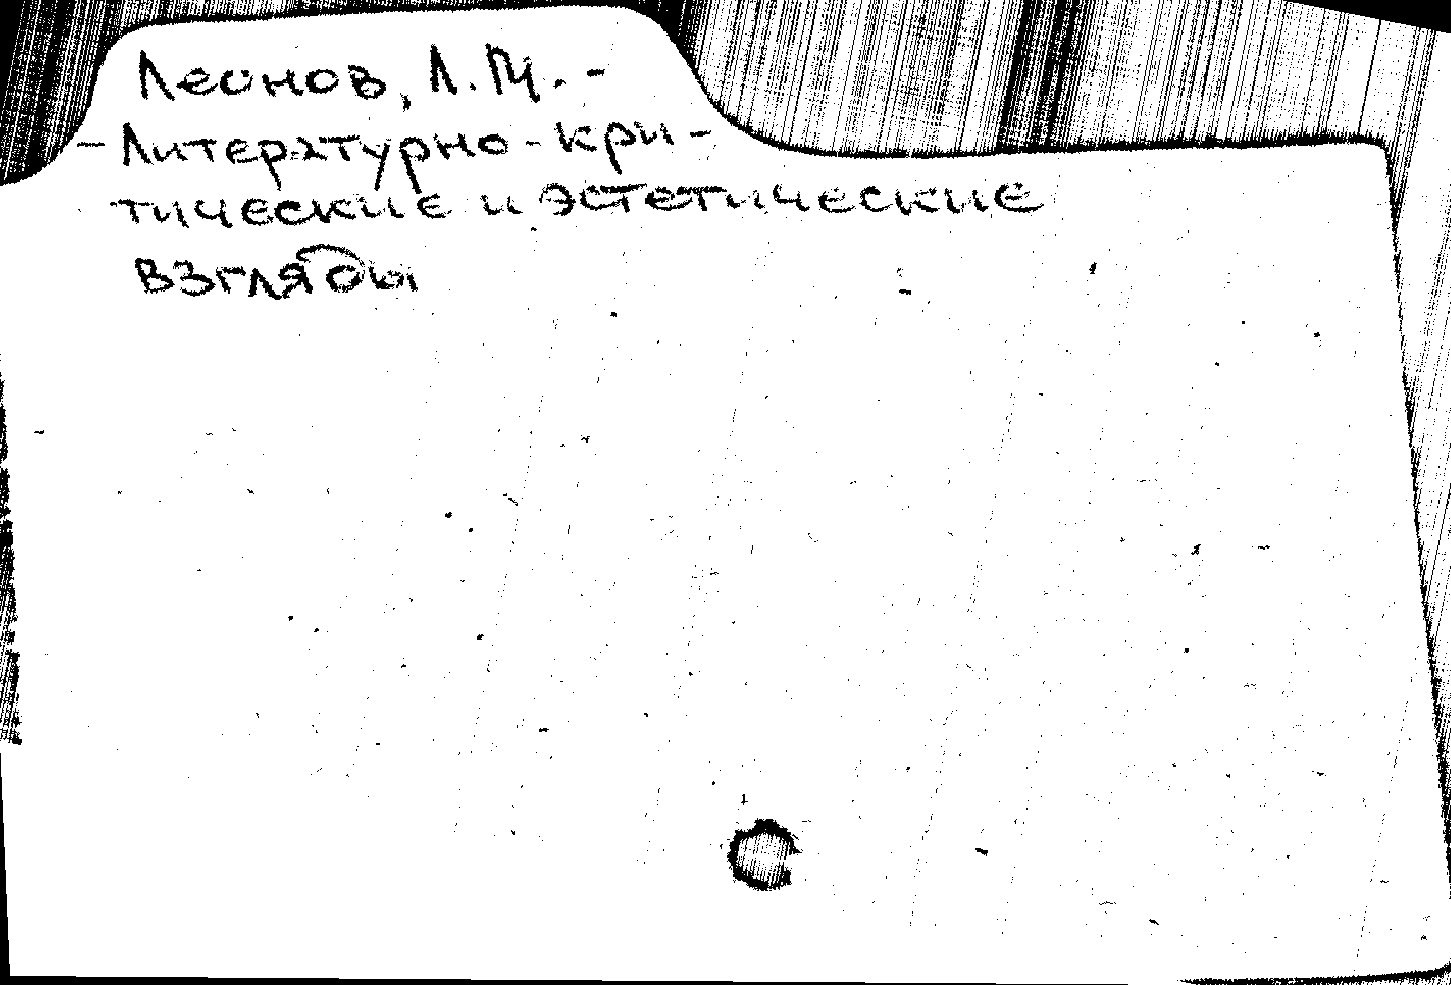 Леонов, Л.М. -
- Литературно-кри-
тические и эстетические
взгляды